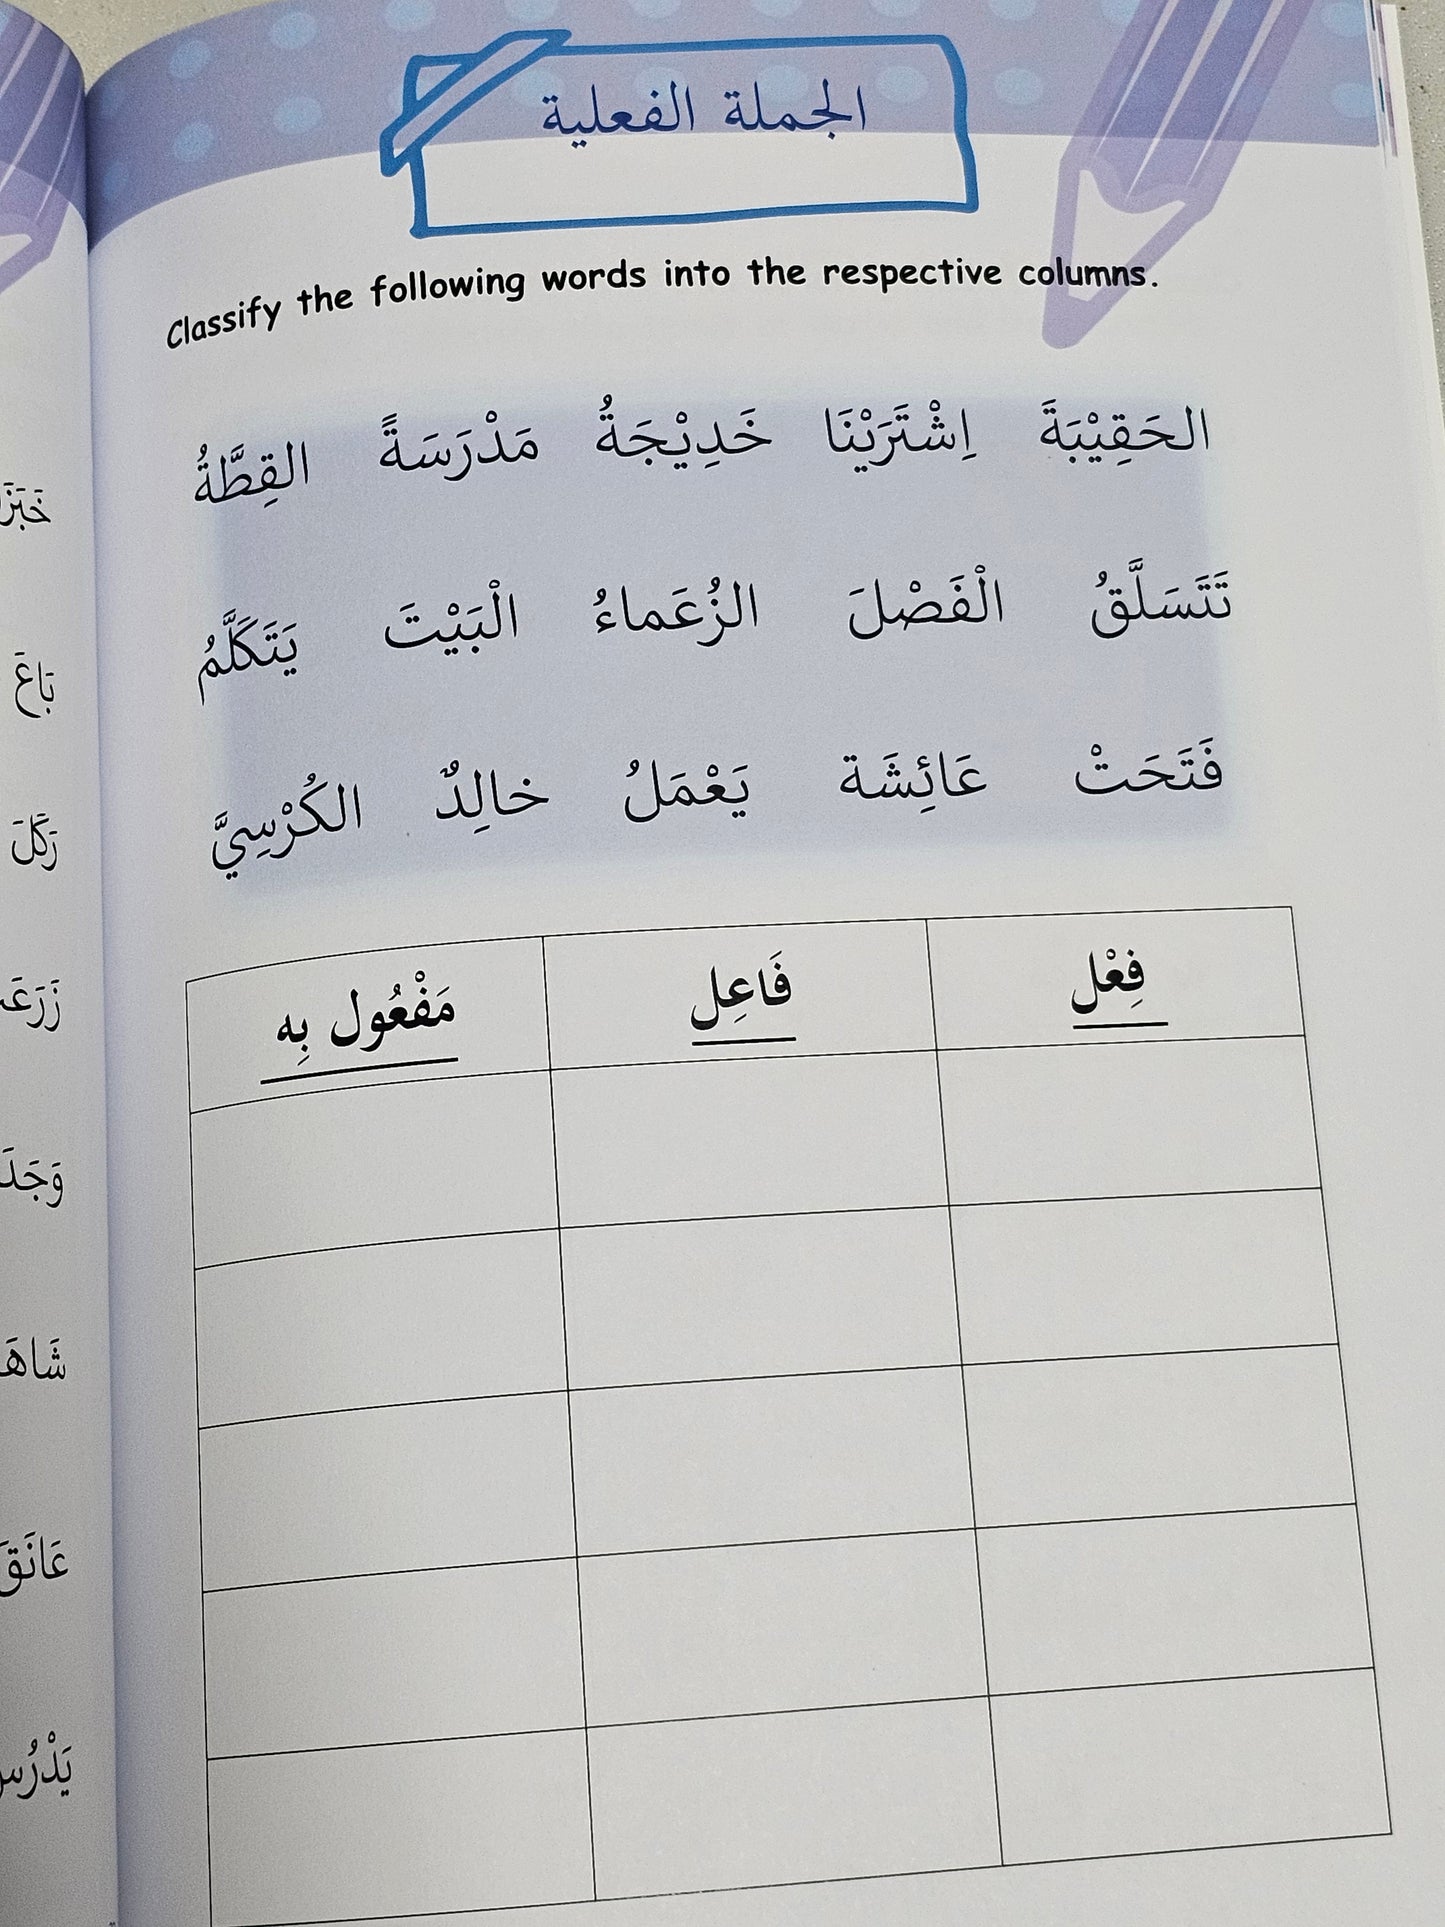 الجملة الفعلية
Classify the following words into the respective columns.
الحَقِيْبَةَ اِشْتَرَيْنَا خَدِيْجَةُ مَدْرَسَةً القِطَّةُ
تَتَسَلَّقُ الْفَصْلَ الزُعَماءُ الْبَيْتَ يَتَكَلَّمُ
فَتَحَتْ عَائِشَة يَعْمَلُ خالِدٌ الكُرْسِيَّ
فِعْل فَاعِل مَفْعُول بِه
بَاعَ
رَكَلَ